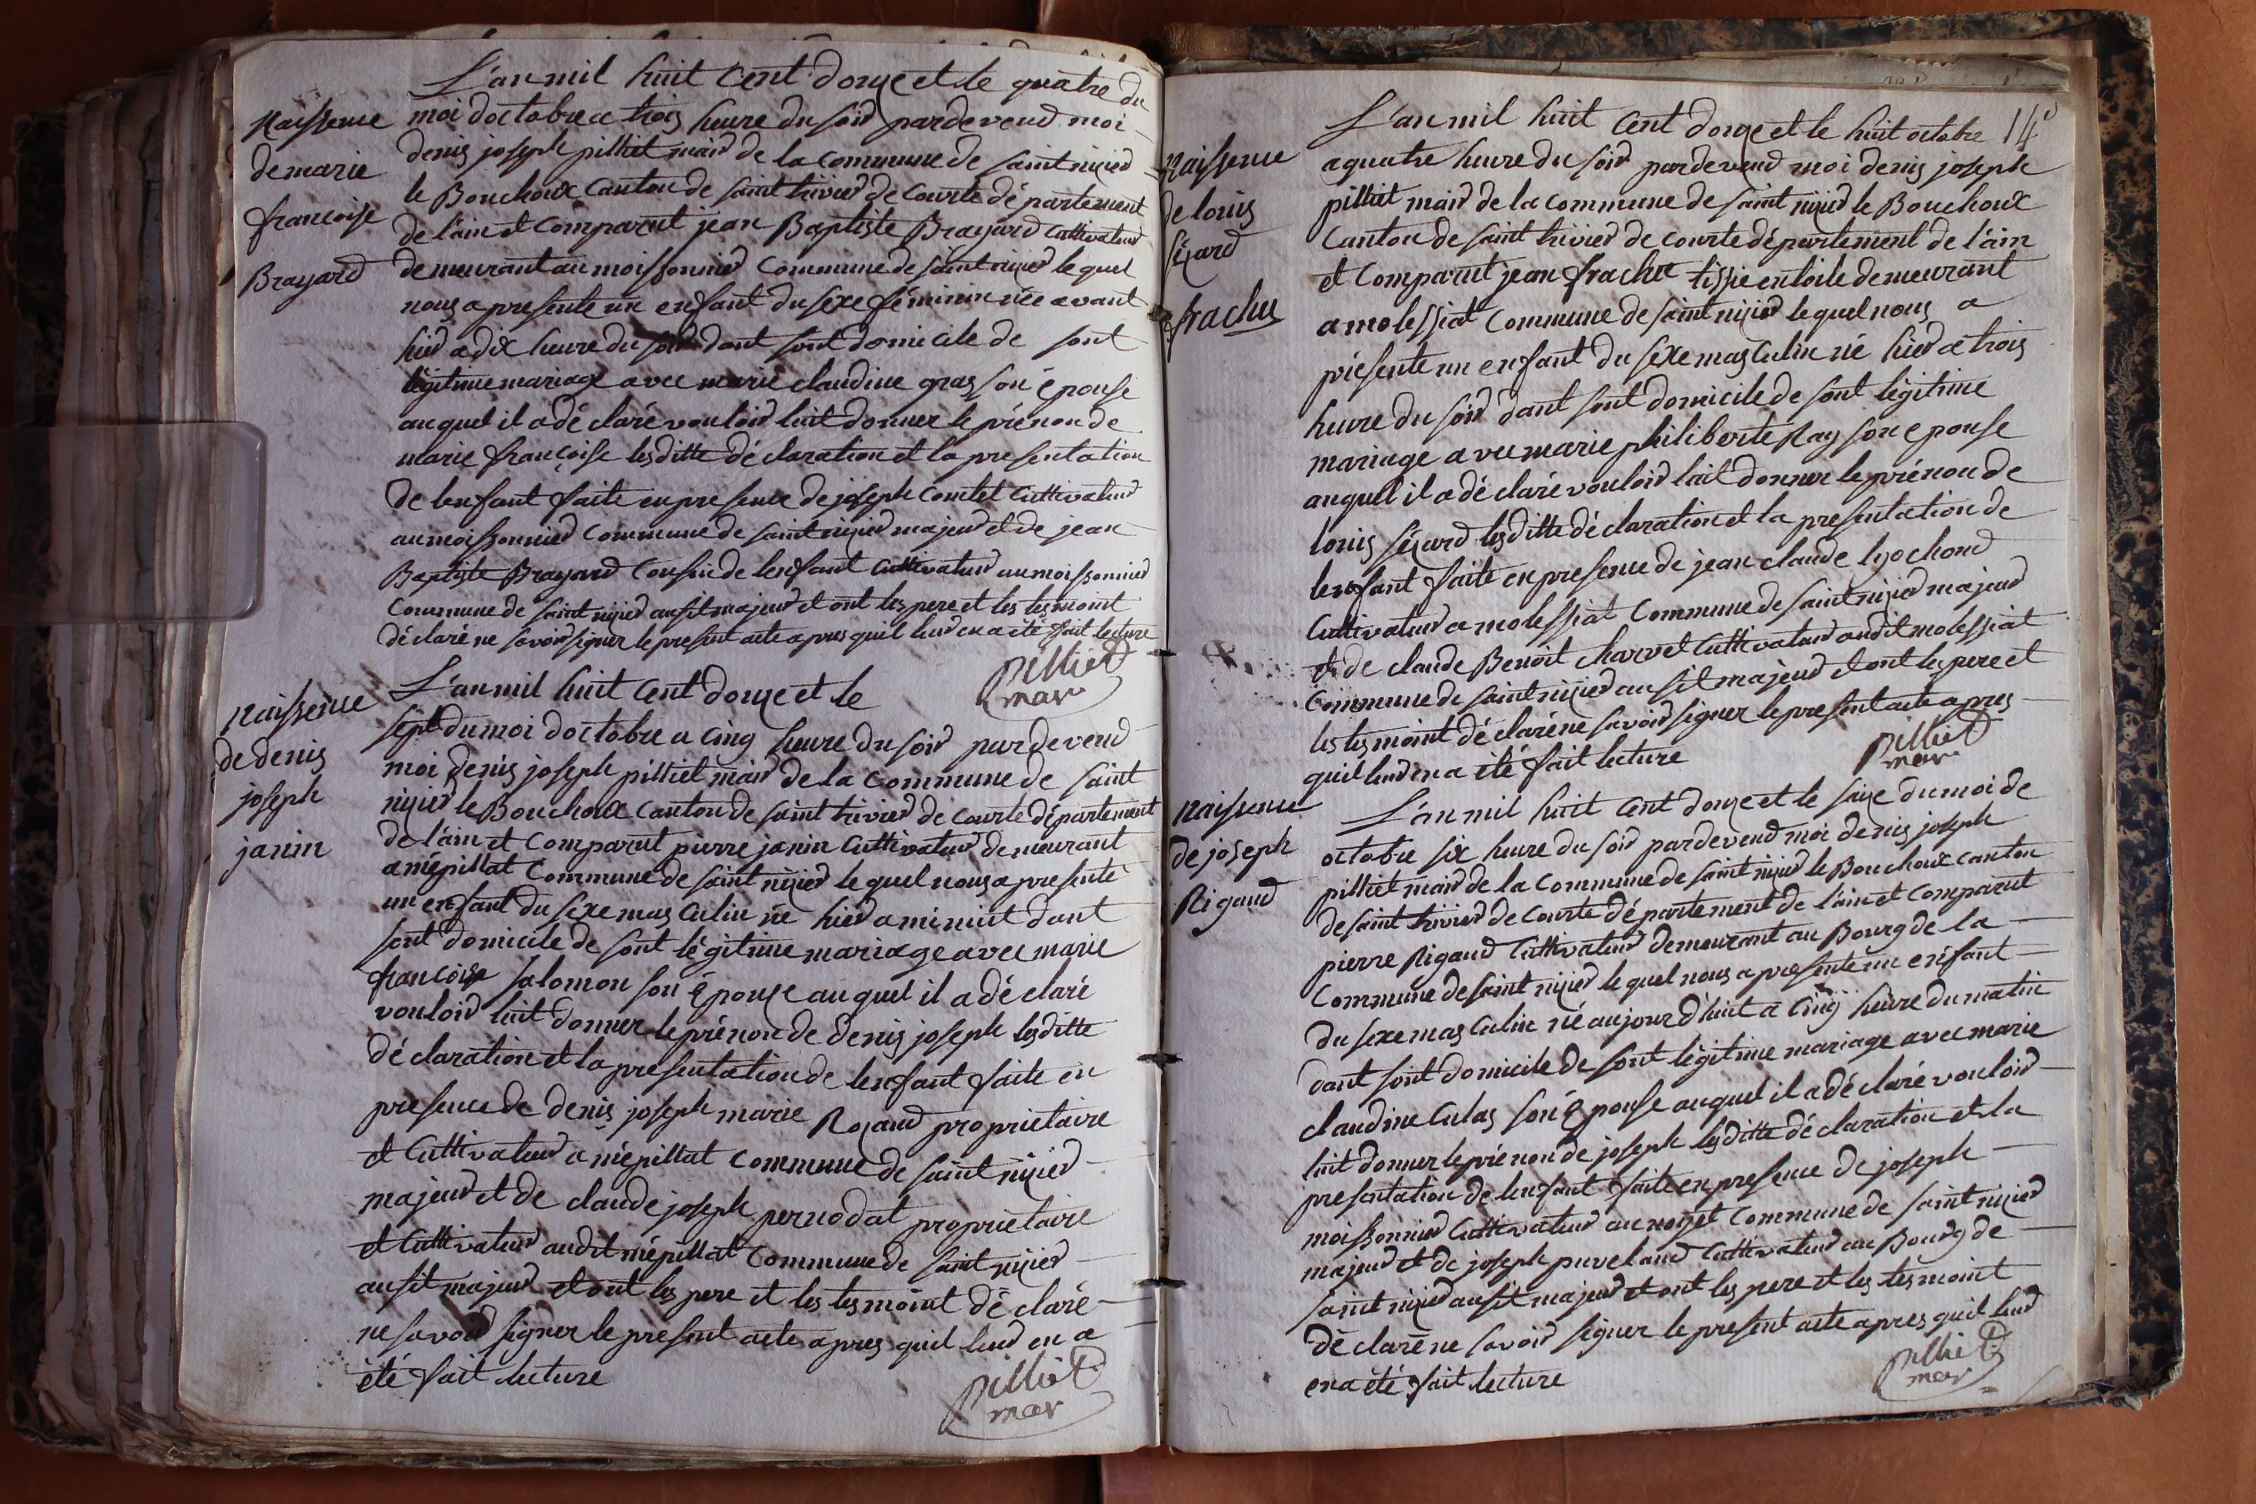 L'an mil huit cent douze et le quatre du
Naissence
de marie
francoise
Brayard
moi doctobre a trois heure du soir pardevend moi
denis joseph pilliet mair de la commune de saint nizier
le Bouchoux Canton de saint trivier de Courte département
de l'ain et Comparut jean Baptiste Brayard Cultivateur
demeurant au moissonnier Commune de saint nizier le quel
nous a presente un enfant du sexe féminin née avant
hier a dix heure du soir dant sont domicile de sont
légitime mariage avec marie claudine gras son épouse
auquel il a dé claré vouloir luit donner le prénon de
marie françoise lesditte déclaration et la presentation
de lenfant faite en presence de joseph Comtet Cultivateur
au moissonnier Commune de saint nizier majeur et de jean
Baptiste Brayard Cousin de lenfant Cultivateur au moissonnier
Commune de saint nizier ausit majeur et ont les pere et les tesmoint
déclaré ne savoir signer le present acte apres quil leur en a été fait lecture
pilliet
mair
Naissence
de denis
joseph
janin
L'an mil huit cent douze et le
sept du moi doctobre a cinq heure du soir pardevend
moi denis joseph pilliet mair de la commune de saint
nizier le Bouchoux Canton de saint trivier de Courte département
de l'ain et Comparut pierre janin Cultivateur demeurant
a mépillat Commune de saint nizier le quel nous a presenté
un enfant du sexe mas Culin né hier a minuit dant
sont domicile de sont légitime mariage avec marie
françoise salomon son épouse auquel il a dé claré
vouloir luit donner le prénon de denis joseph lesditte
déclaration et la presentation de lenfant faite en
presence de denis joseph marie Rozand proprietaire
et Cultivateur a mépillat Commune de saint nizier
majeur et de claude joseph pernodat propriétaire
et Cultivateur audit mépillat Commune de saint nizier
ausit majeur et ont les pere et les tesmoint dé claré
ne savoir signer le present acte apres quil leur en a
été fait lecture
pilliet
mair
14
Naissence
de louis
sézard
frachet
L'an mil huit cent douze et le huit octobre
a quatre heure du soir pardevend moi denis joseph
pilliet mair de la commune de saint nizier le Bouchoux
Canton de saint trivier de Courte département de l'ain
et Comparut jean frachet tissié en toile demeurant
a molessiat Commune de saint nizier le quel nous a
présente un enfant du sexe mas Culin né hier a trois
heure du soir dant sont domicile de sont légitime
mariage avec marie philiberte Ray son epouse
auquel il a dé claré vouloir luit donner le prénon de
louis sézard lesditte déclaration et la presentation de
lenfant faite en presence de jean claude
Cultivateur a molessiat Commune de saint nizier majeur
et de claude Benoit charvet Cultivateur audit molessiat
Commune de saint nizier ausit majeur et ont les pere et
les tesmoint déclaré ne savoir signer le present acte apres
quil leur en a été fait lecture
pilliet
mair
Naissence
de joseph
Rigaud
L'an mil huit cent douze et le saize du moi de
octobre six heure du soir pardevend moi denis joseph
pilliet mair de la Commune de saint nizier le Bouchoux canton
de saint trivier de Courte département de l'ain et Comparut
pierre Rigaud Cultivateur demeurant au Bourg de la
Commune de saint nizier le quel nous a presente un enfant
du sexe mas Culin né aujourd'huit a cinq heure du matin
dant sont domicile de sont légitime mariage avec marie
claudine Culas son épouse auquel il a dé claré vouloir
luit donner le prénon de joseph lesditte déclaration et la
presentation de lenfant faite en presence de joseph
moissonnier Cultivateur au noyet Commune de saint nizier
majeur et de joseph puveland Cultivateur au Bourg de
saint nizier ausit majeur et ont les pere et les tesmoint
dé claré ne savoir signer le present acte apres quil leur
en a été fait lecture
pilliet
mair